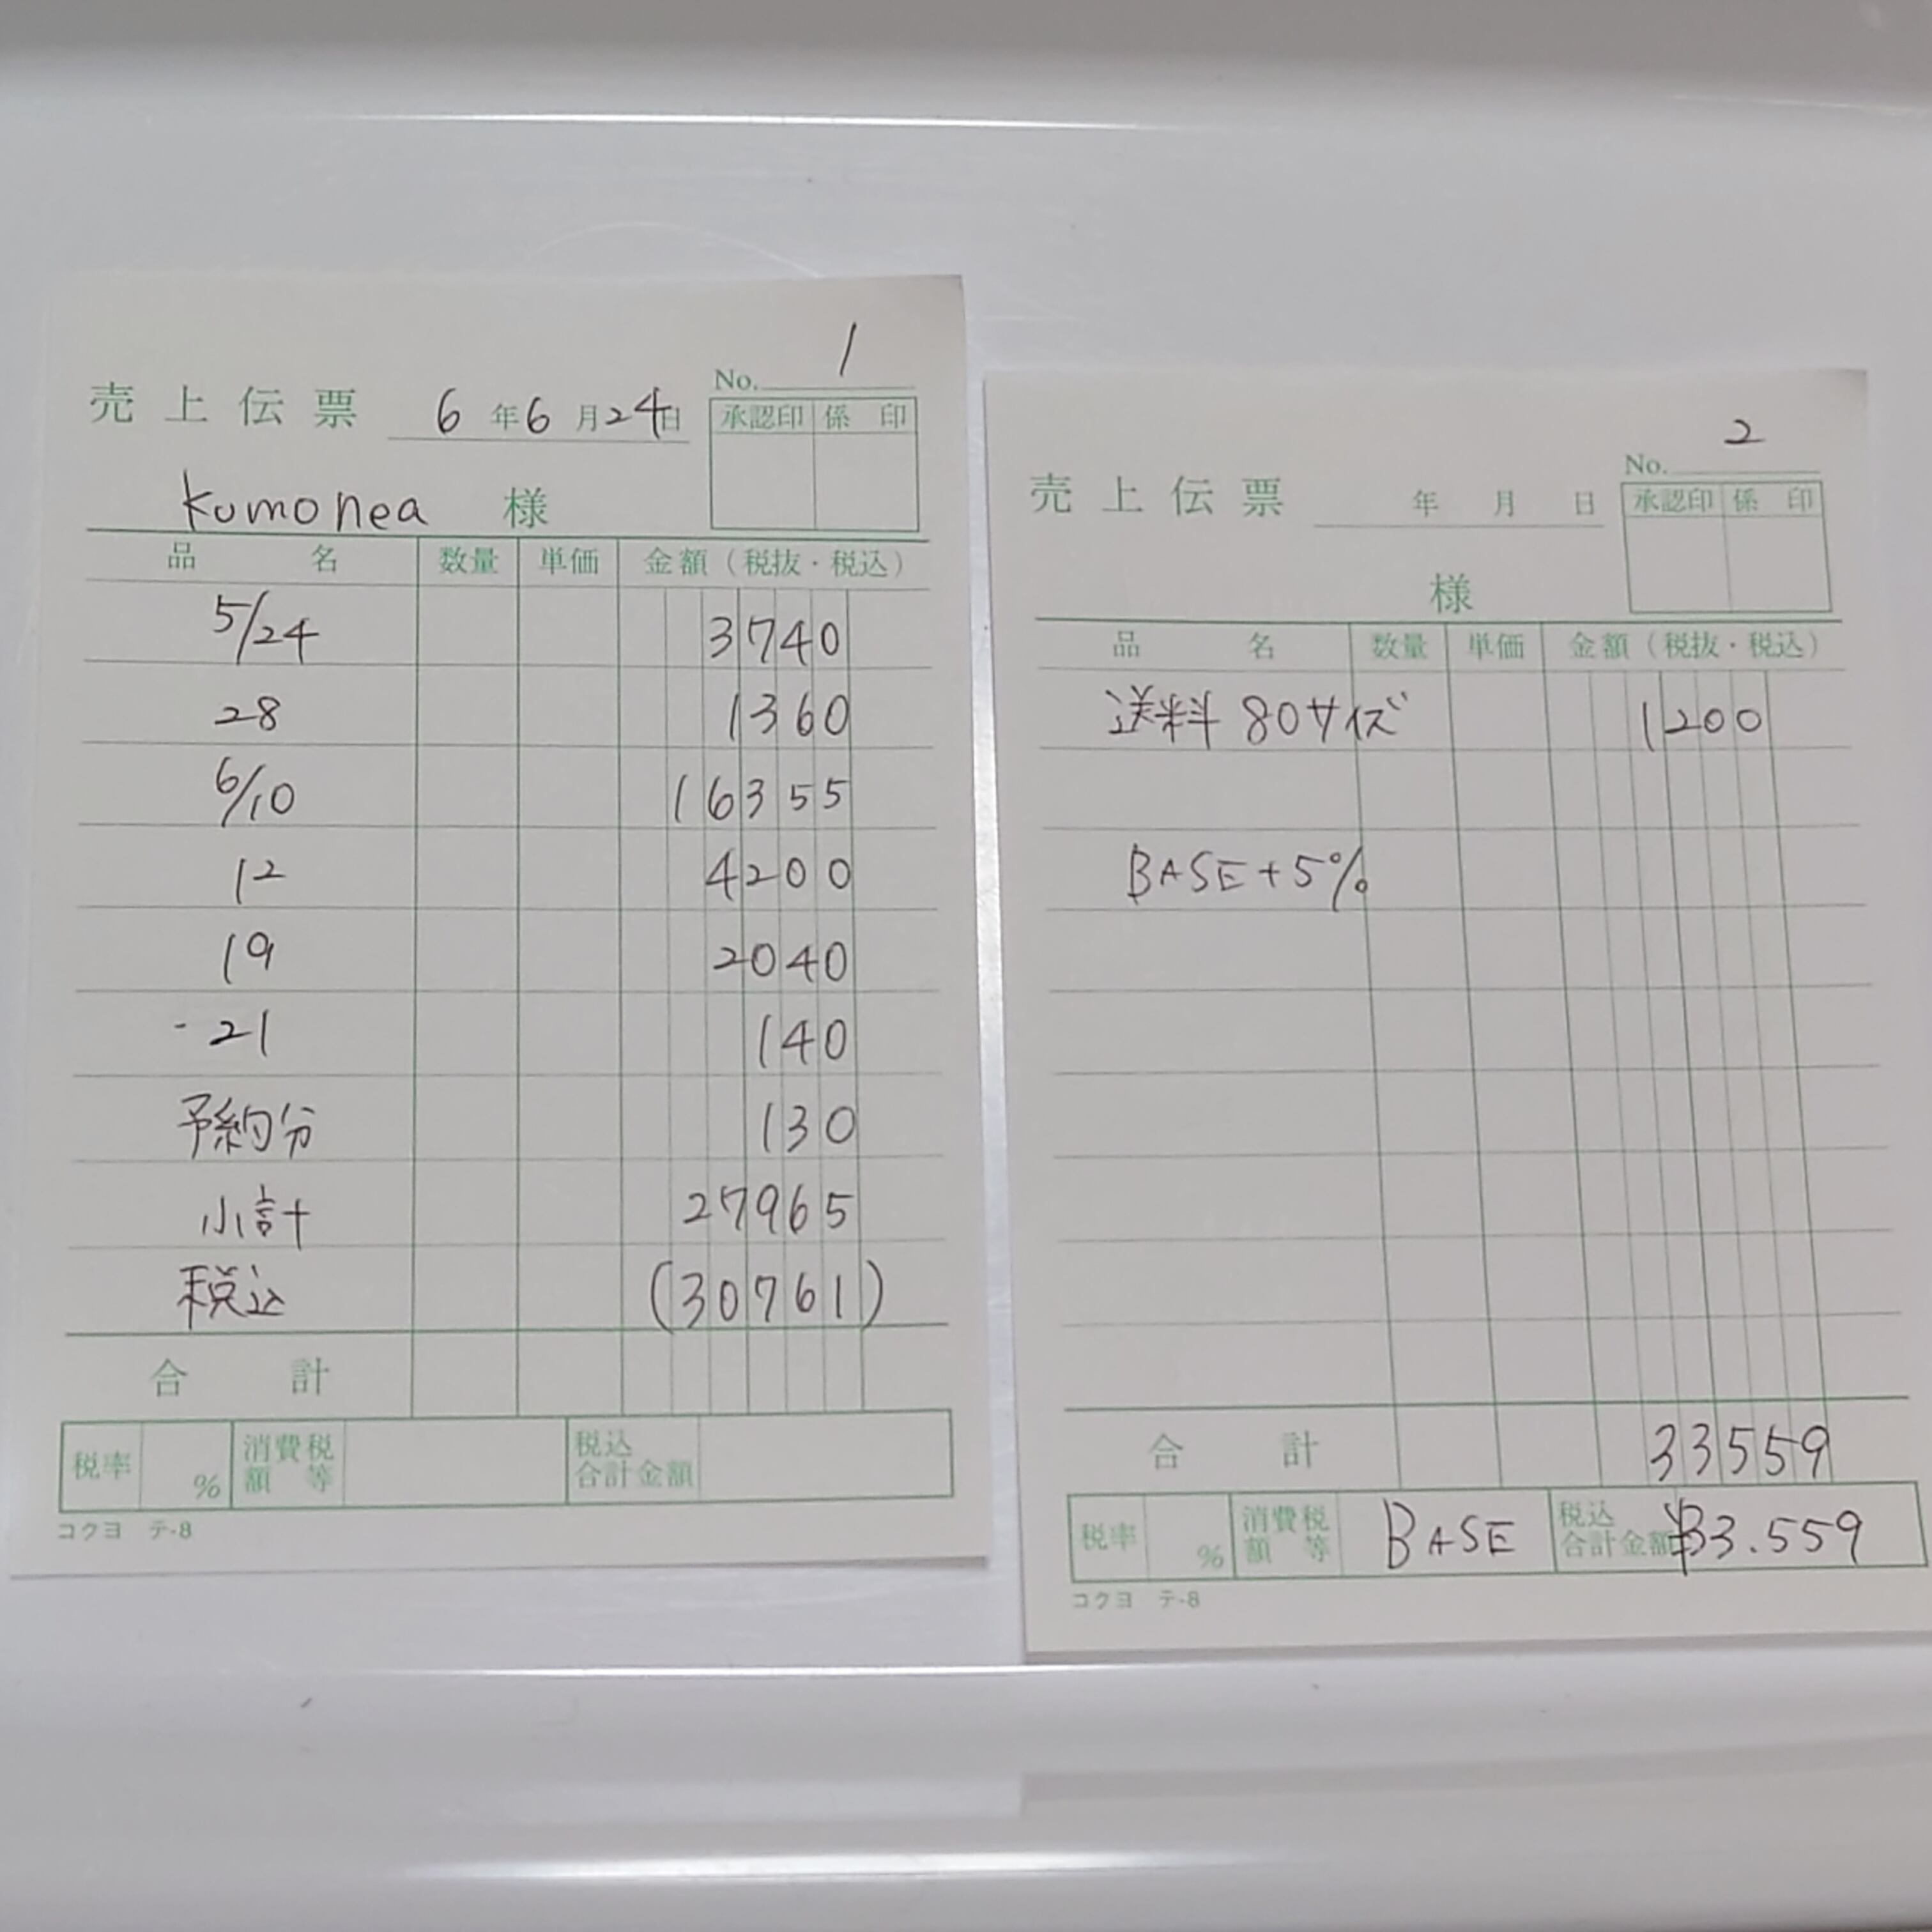 No. 1
売上伝票 6年6月24日
承認印 係印
kumonea 様
品名 数量 単価 金額（税抜・税込）
5/24 3740
28 1360
6/10 16355
12 4200
19 2040
-21 140
予約分 130
小計 27965
税込 (30761)
合計
税率 % 消費税額等 税込合計金額
コクヨ テ-8
No. 2
売上伝票 年 月 日
承認印 係印
様
品名 数量 単価 金額（税抜・税込）
送料 80サイズ 1200
BASE+5%
合計 33559
税率 % 消費税額等 BASE 税込合計金額 ¥33.559
コクヨ テ-8